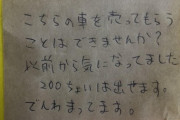 こちらの車を売ってもらう
ことはできませんか?
以前から気になってました
200ちょいは出せます。
でんわまってます。